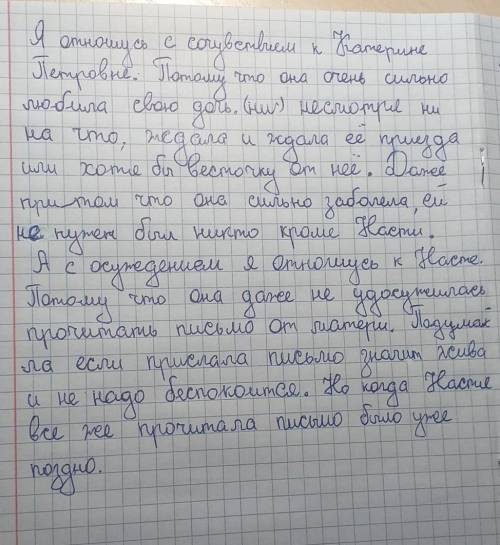 Я отношусь с сочуствием к Катерине
Петровне. Потому что она очень сильно
любила свою дочь. (ни) несмотря ни
на что, ждала и ждала её приезда
или хотя бы весточку от неё. Даже
при том что она сильно заболела, ей
не нужен был никто кроме Насти.
А с осуждением я отношусь к Насте.
Потому что она даже не удосужилась
прочитать письмо от матери. Подумай
ла если прислала письмо значит жива
и не надо беспокоится. Но когда Настя
все же прочитала письмо было уже
поздно.